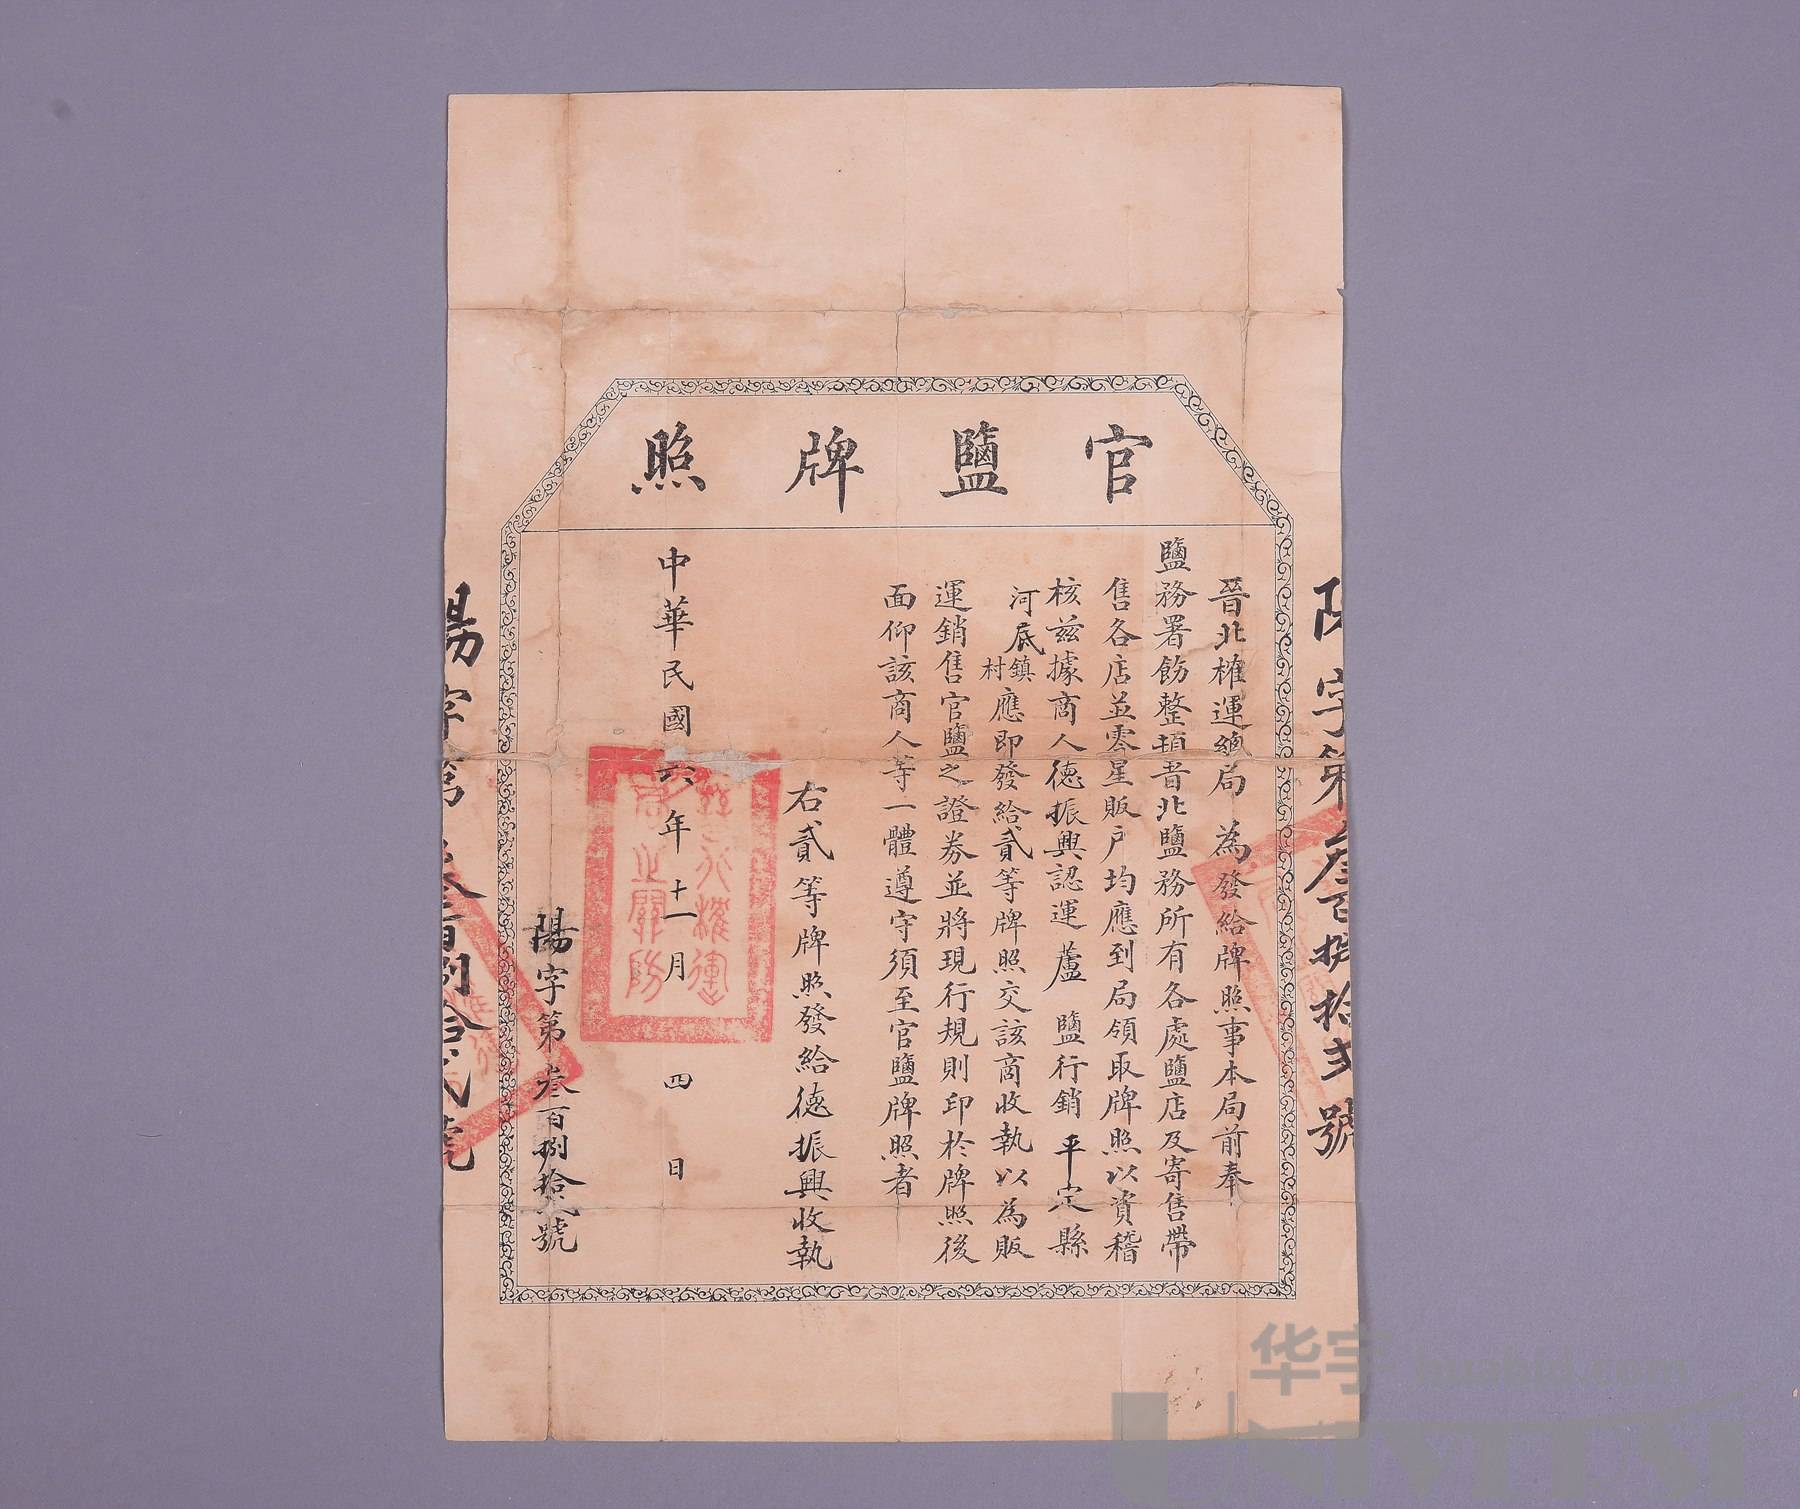 官鹽牌照
晉北榷運總局 為發給牌照事本局前奉
鹽務署飭整頓晋北鹽務所有各處鹽店及寄售帶
售各店並零星販户均應到局領取牌照以資稽
核兹據商人德振興認運 蘆 鹽行銷 平定縣
河底鎮村應即發給貳等牌照交該商收執以為販
運銷售官鹽之證券並將現行規則印於牌照後
面仰該商人等一體遵守須至官鹽牌照者
右貳等牌照發給德振興收執
中華民國六年十一月 四 日
陽字第叁百捌拾弍號
字第叁百捌拾弍號
陽字第叁百捌拾弍號
华宇